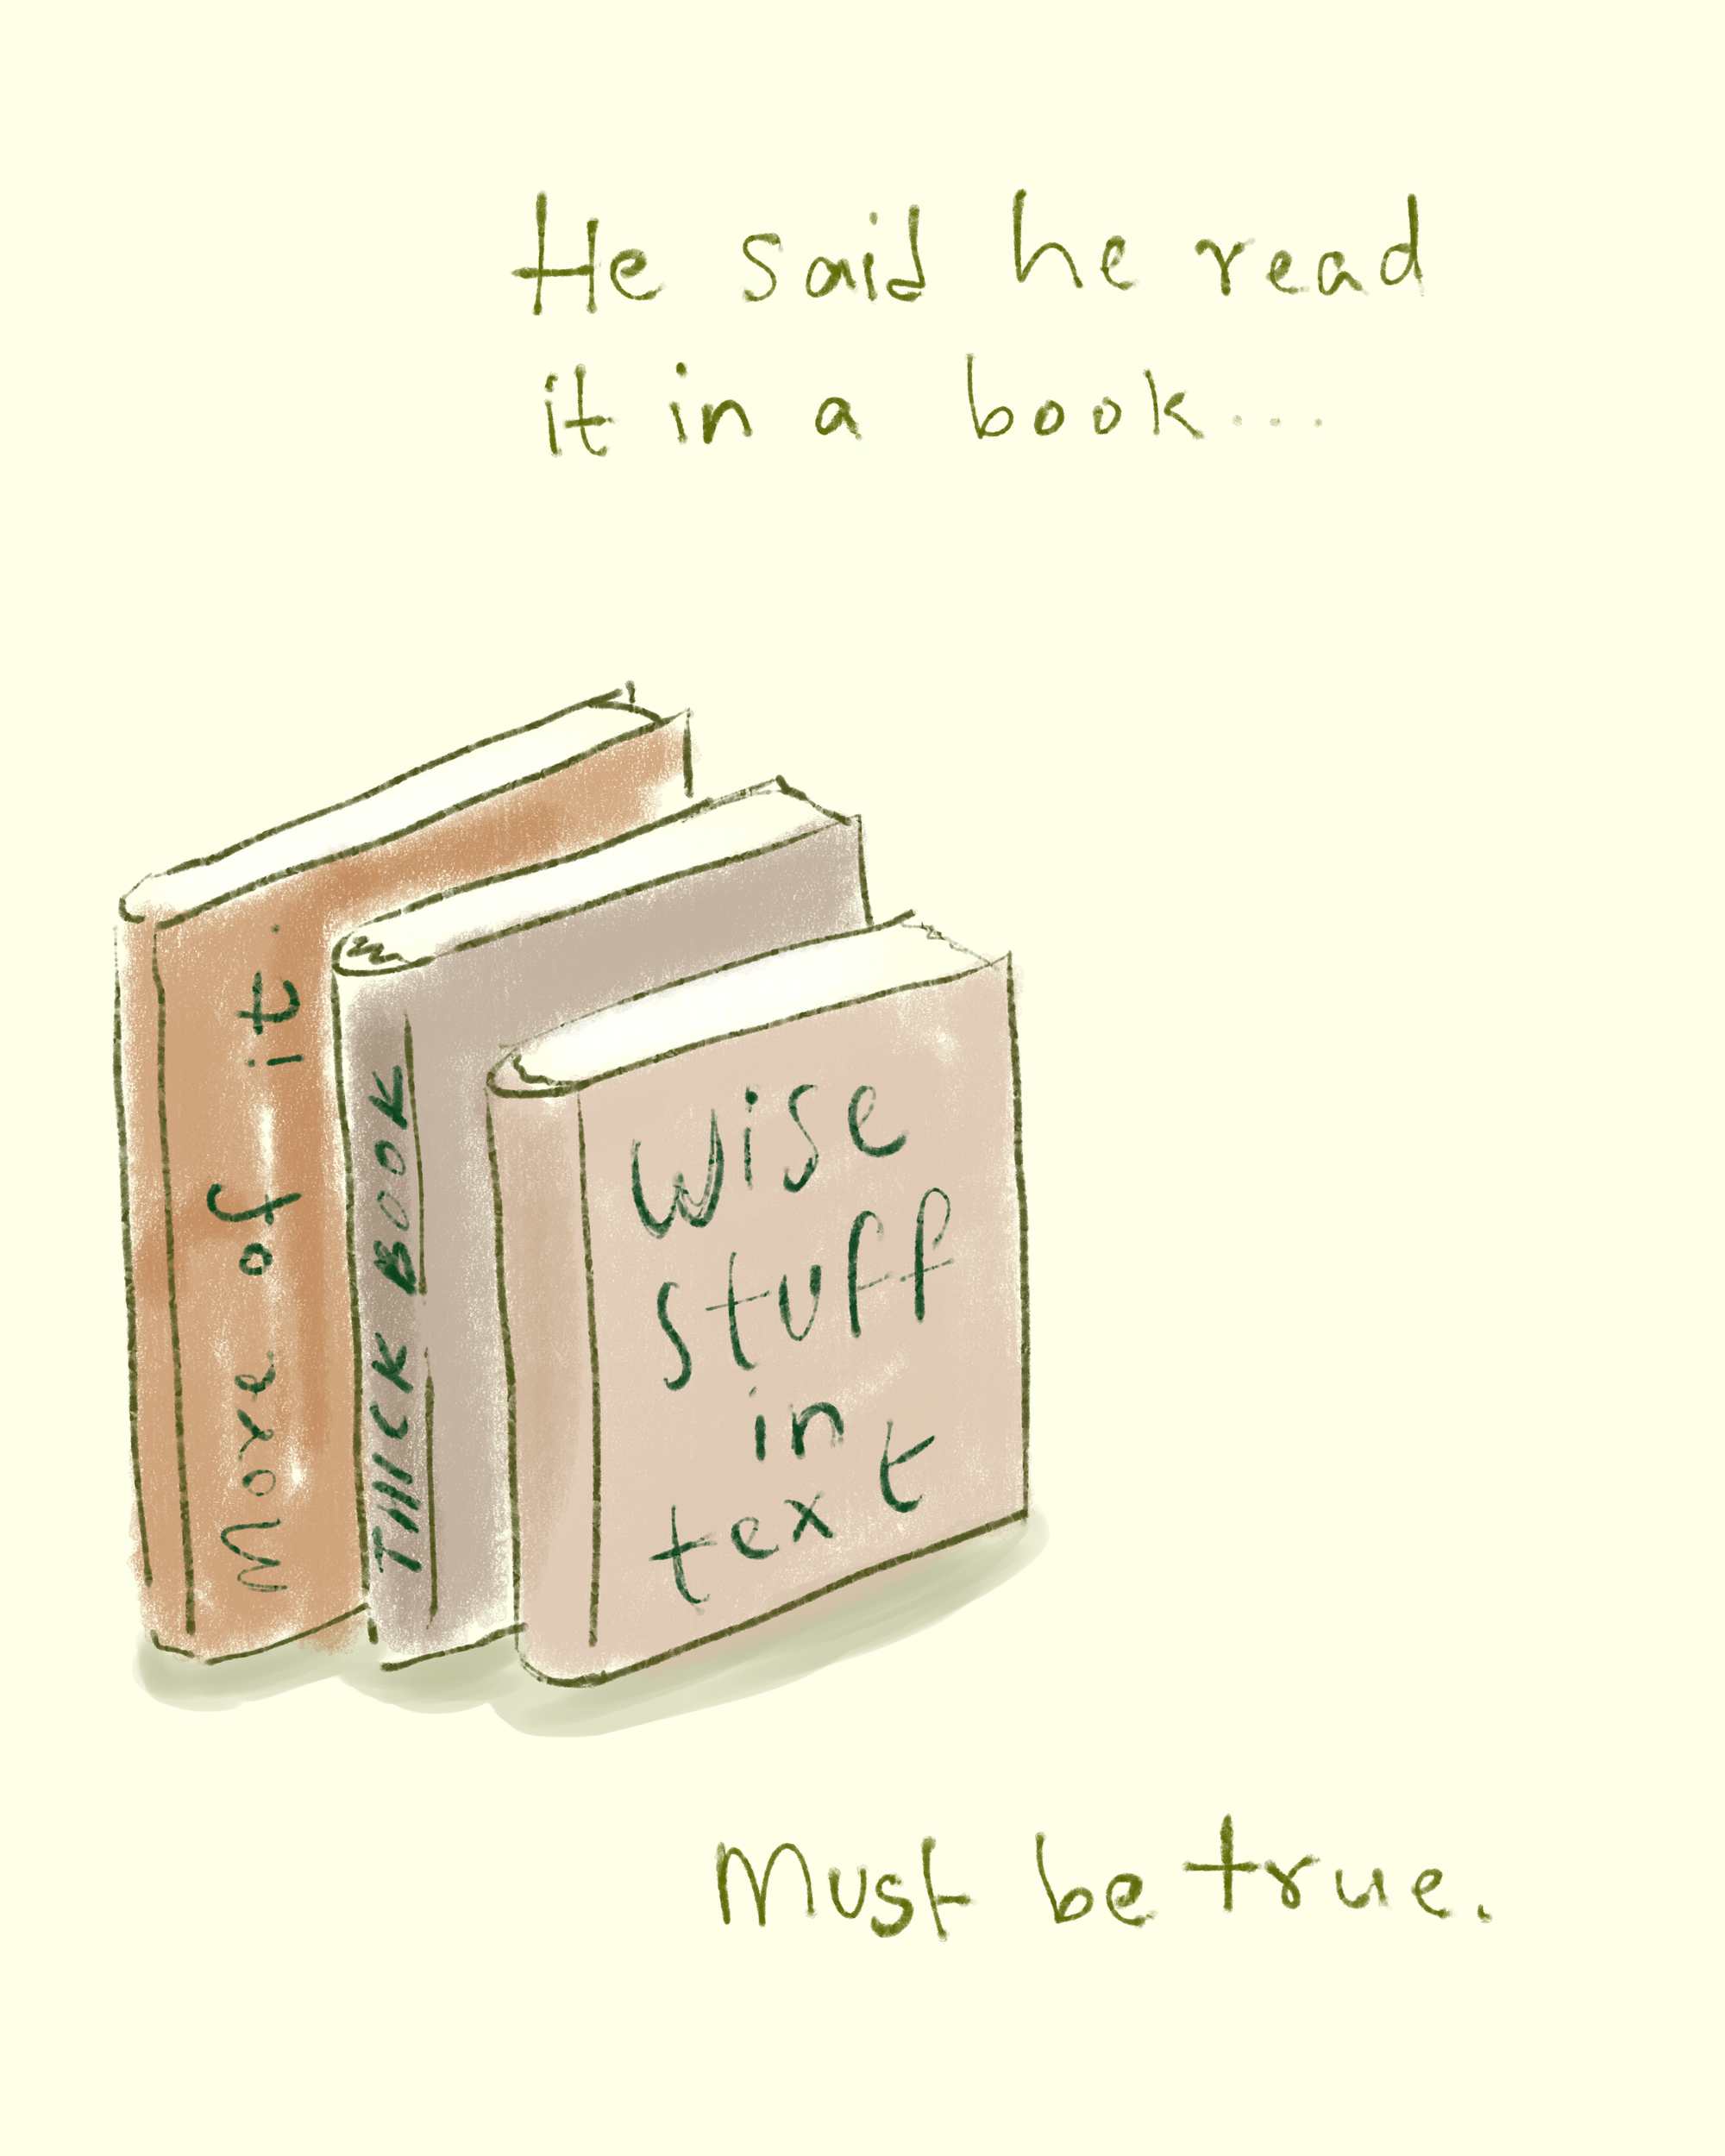 He said he read
it in a book...
More of it.
THICK BOOK
Wise
stuff
in
text
Must be true.